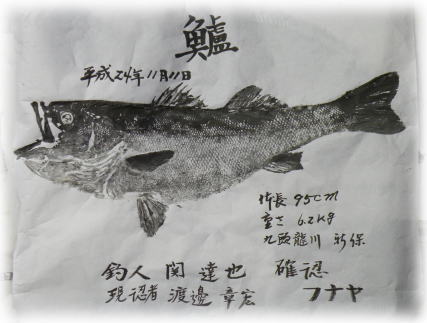 鱸
平成24年11月11日
体長 95cm
重さ 6.2kg
九頭龍川 新保
釣人 関 達也 確認
現認者 渡邉 章宏 フナヤ